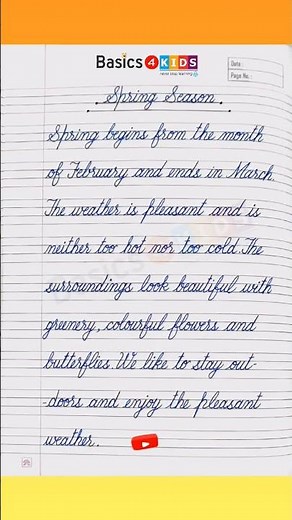 Basics 4 KIDS
never stop learning
Date :
Page No. :
Spring Season
Spring begins from the month
of February and ends in March.
The weather is pleasant and is
neither too hot nor too cold. The
surroundings look beautiful with
greenery, colourful flowers and
butterflies. We like to stay out-
-doors and enjoy the pleasant
weather.